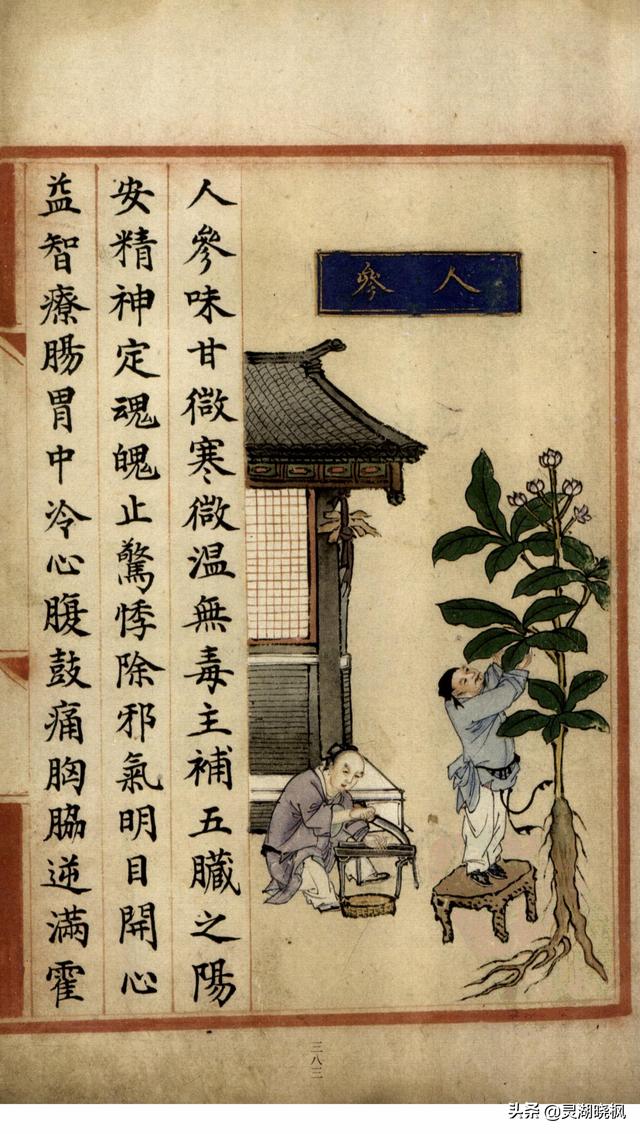 人參
人參味甘微寒微溫無毒主補五臟之陽
安精神定魂魄止驚悸除邪氣明目開心
益智療腸胃中冷心腹鼓痛胸脇逆滿霍
三八三
头条 @灵湖晓枫